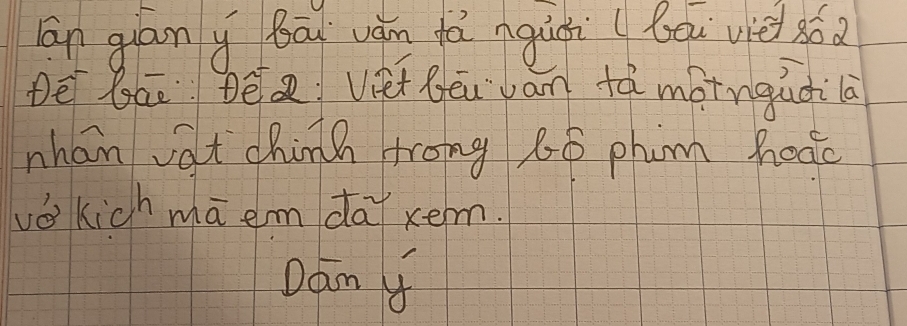 Lập giàn ý bài văn tả người ( bài viết số 2
Đề bài: Đề 2: Viết bài văn tả một người là
nhân vật chính trong bộ phim hoặc
vở kịch mà em đã xem.
Dàn ý